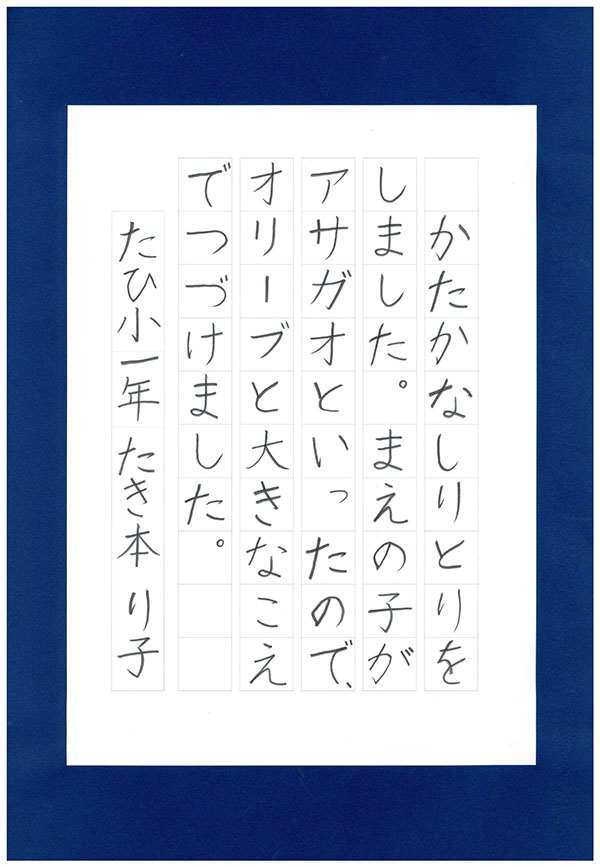 かたかなしりとりを
しました。まえの子が
アサガオといったので、
オリーブと大きなこえ
でつづけました。
たひ小一年 たき本 り子